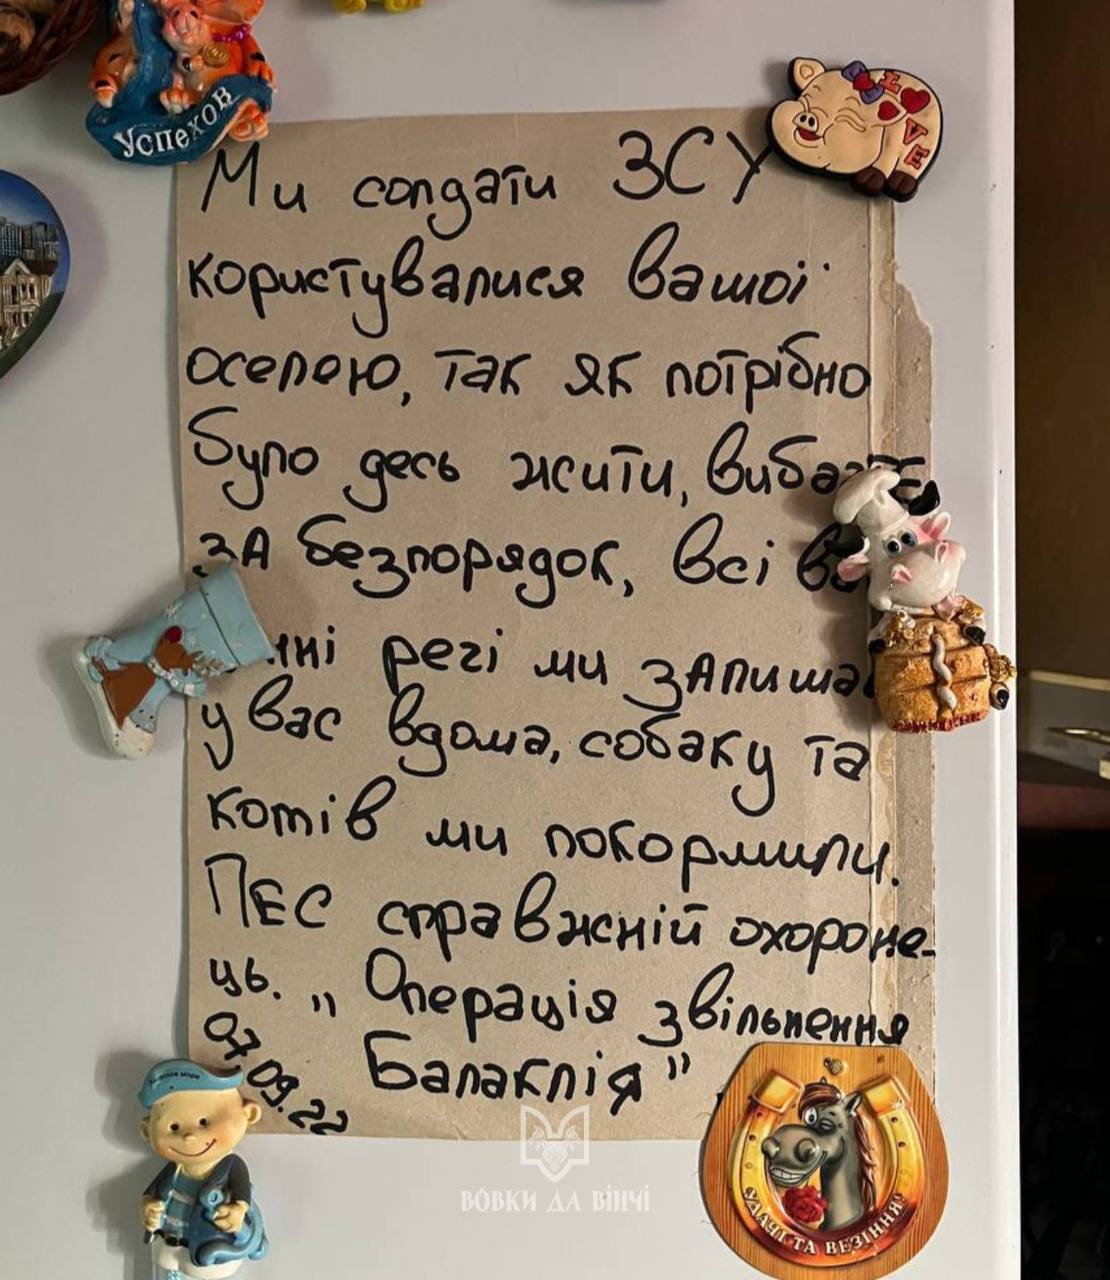 Успехов
LOVE
Ми солдати ЗСУ
користувалися вашої
оселею, так як потрібно
було десь жити,
за безпорядок, всі
речі ми
у вас вдома, собаку та
котів ми покормили.
ПЕС справжній охороне-
ць. „Операція звільнення
Балаклія"
07.09.22
ВОВКИ ДА ВІНЧІ
УДАЧІ ТА ВЕЗІННЯ!